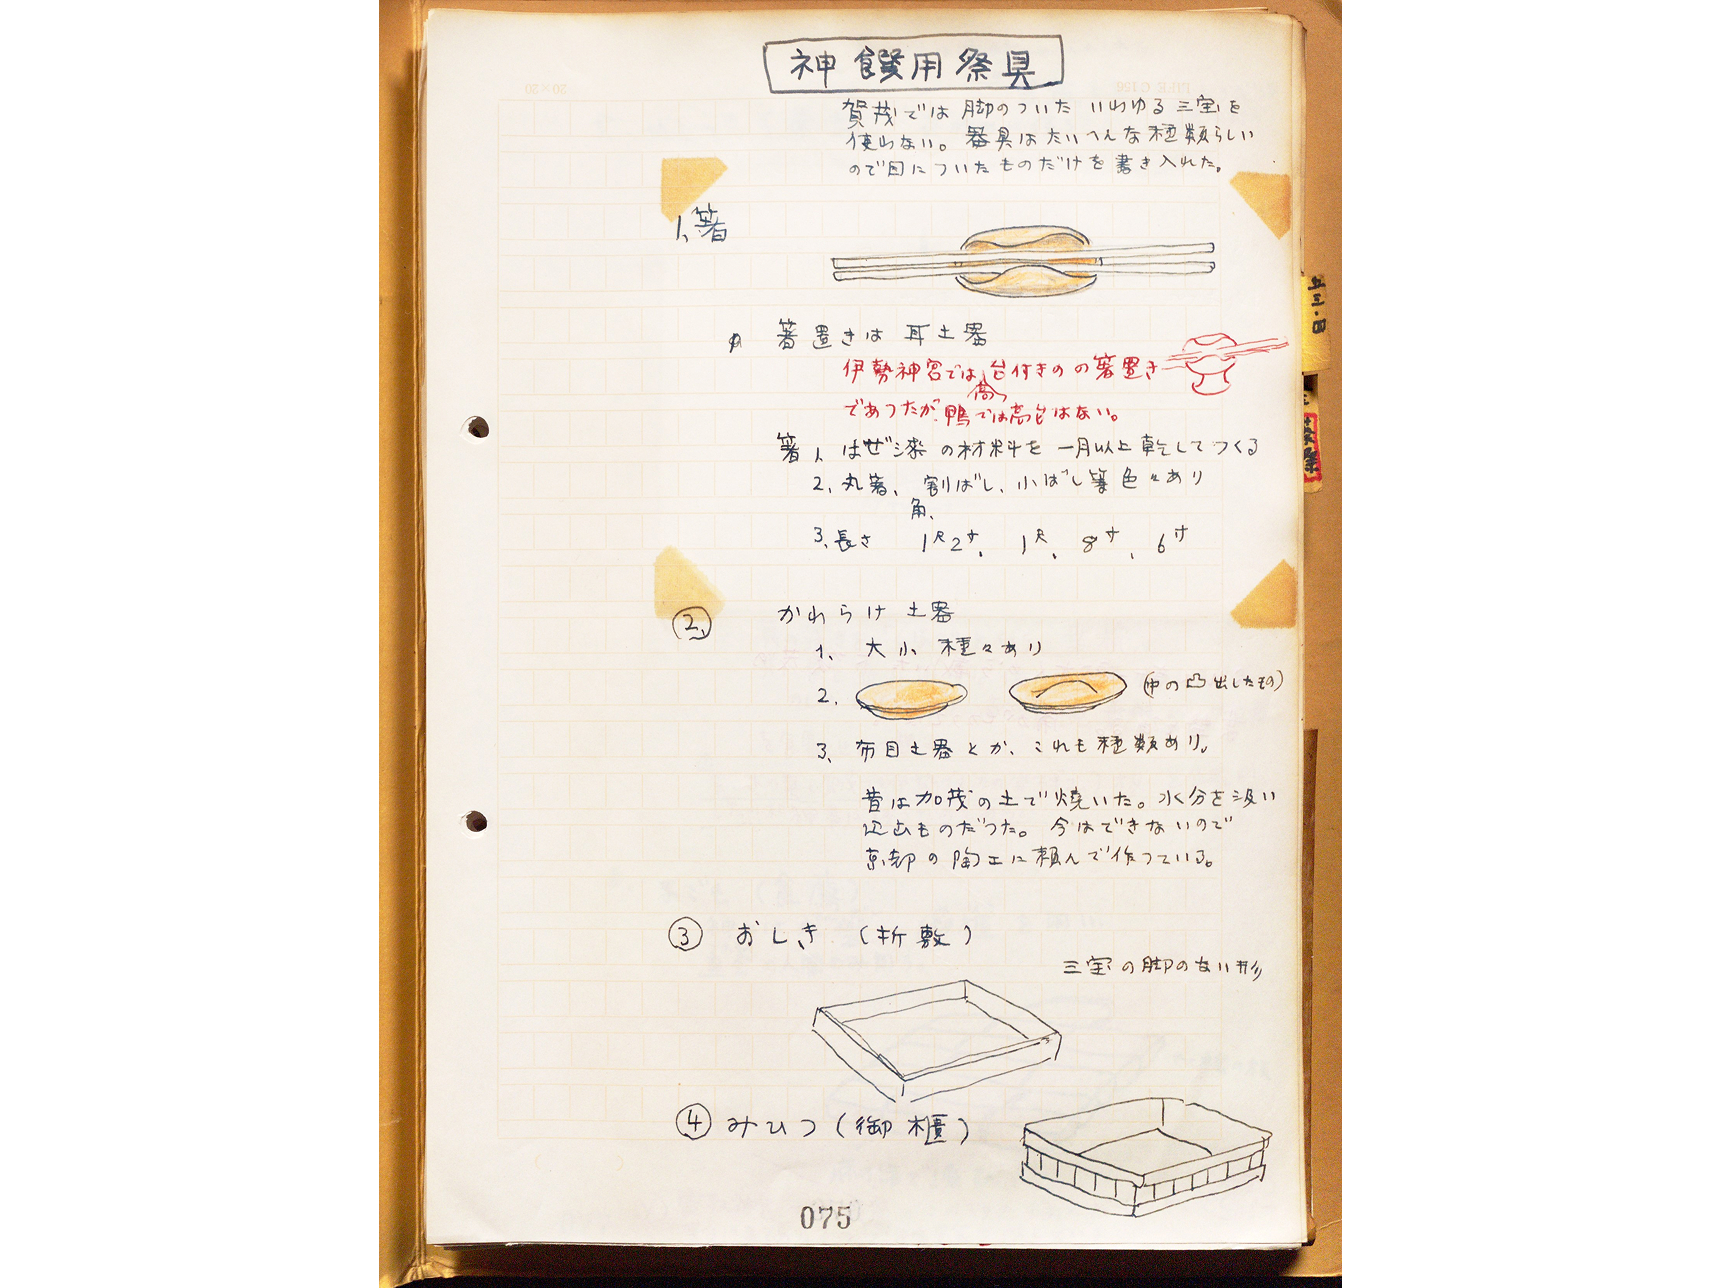 神饌用祭具
賀茂では脚のついた いわゆる三宝を
使わない。器具はたいへんな種類らしい
ので目についたものだけを書き入れた。
1、箸
箸置きは 耳土器
伊勢神宮では高台付きのの箸置き
であつたが、鴨では高台はない。
箸 1、はぜ漆の材料を一月以上乾してつくる
2、丸箸、割ばし、小ばし等色々あり
角、
3、長さ 1尺2寸、1尺、8寸、6寸
② かわらけ 土器
1、大小 種々あり
2、(中の凸出したもの)
3、布目土器とか、これも種類あり。
昔は加茂の土で焼いた。水分を汲い
込むものだつた。今はできないので
京都の陶工に頼んで作つている。
③ おしき (折敷)
三宝の脚のない形
④ みひつ (御櫃)
075
五三・四